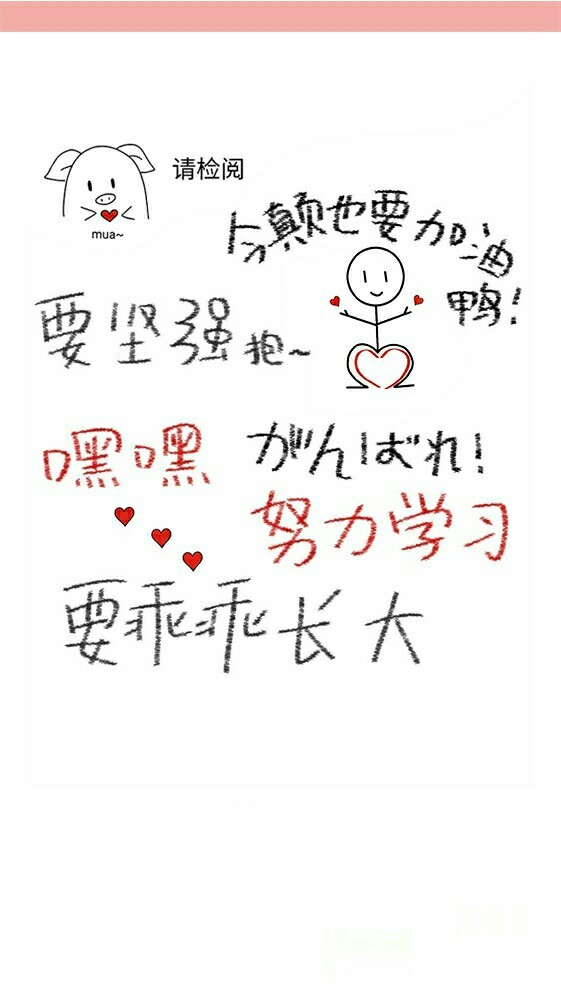 请检阅
mua~
今颠也要加油
鸭!
要坚强抱~
嘿嘿
がんばれ!
努力学习
要乖乖长大